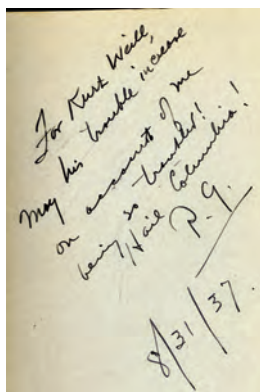 For Kurt Weill,
May his trouble increase
on account of me
being so trouble!
Hail Columbia!
P. G.
8/31/37.